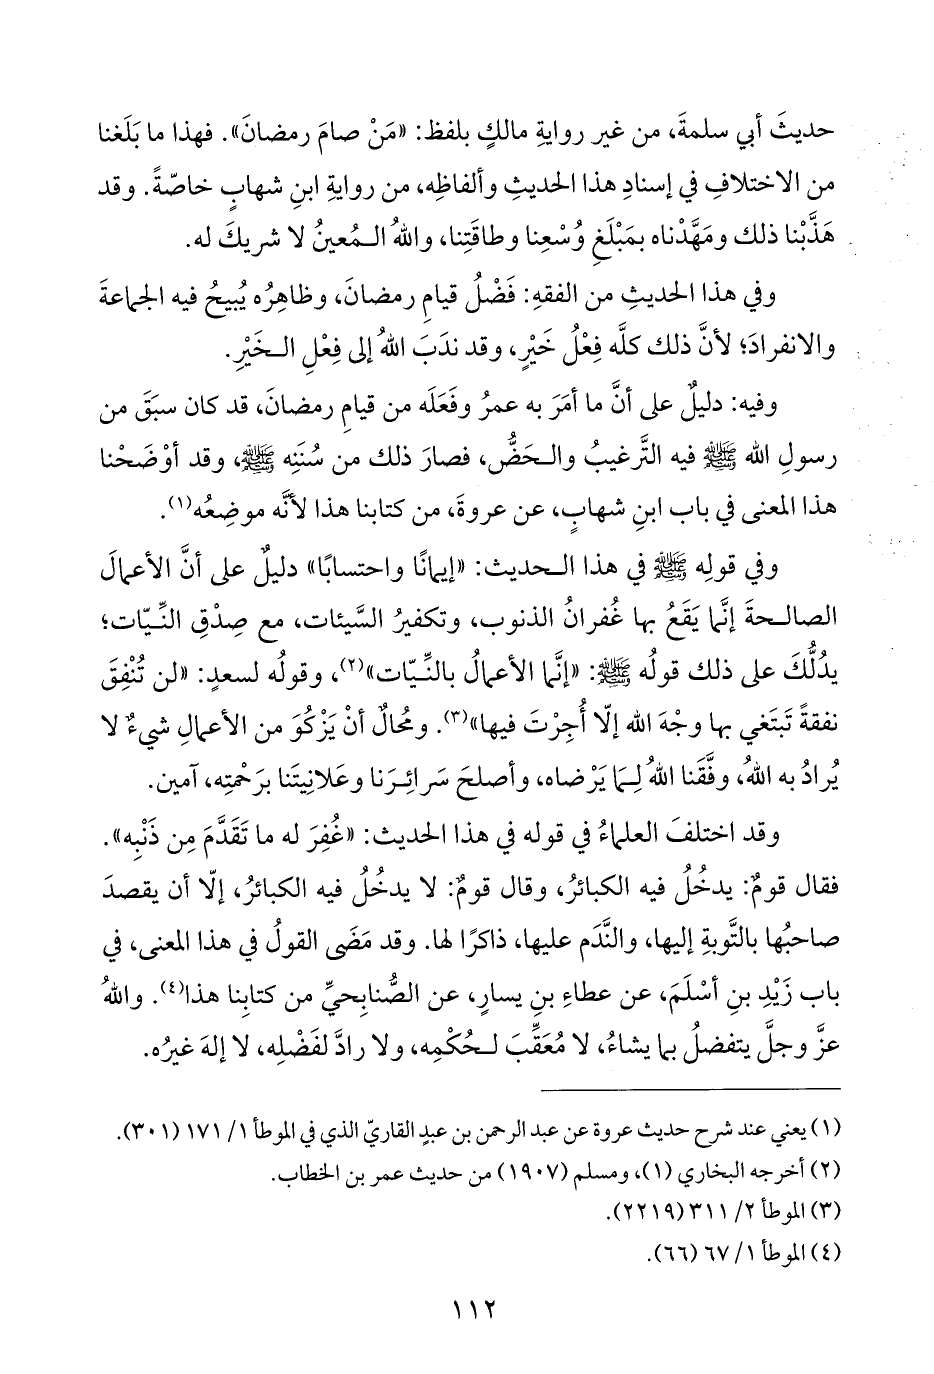 حديثَ أبي سلمةَ، من غير روايةِ مالكٍ بلفظ: «مَنْ صامَ رمضانَ». فهذا ما بَلَغنا
من الاختلافِ في إسنادِ هذا الحديثِ وألفاظِه، من روايةِ ابنِ شهابٍ خاصّةً. وقد
هَذَّبْنا ذلك ومَهَّدْناه بمَبْلَغِ وُسْعِنا وطاقَتِنا، واللهُ الـمُعينُ لا شريكَ له.
وفي هذا الحديثِ من الفقهِ: فَضْلُ قيامِ رمضانَ، وظاهِرُه يُبيحُ فيه الجماعةَ
والانفرادَ؛ لأنَّ ذلك كلَّه فِعْلُ خَيْرٍ، وقد ندَبَ اللهُ إلى فِعْلِ الـخَيْرِ.
وفيه: دليلٌ على أنَّ ما أمَرَ به عمرُ وفَعَلَه من قيامِ رمضانَ، قد كان سبَقَ من
رسولِ الله ﷺ فيه التَّرغيبُ والـحَضُّ، فصارَ ذلك من سُنَنِه ﷺ، وقد أوْضَحْنا
هذا المعنى في باب ابنِ شهابٍ، عن عروةَ، من كتابنا هذا لأنَّه موضِعُه(١).
وفي قولِه ﷺ في هذا الـحديث: «إيمانًا واحتسابًا» دليلٌ على أنَّ الأعمالَ
الصالـحةَ إنَّما يَقَعُ بها غُفرانُ الذنوبِ، وتكفيرُ السَّيئات، مع صِدْقِ النِّـيّات؛
يدُلُّكَ على ذلك قولُه ﷺ: «إنَّما الأعمالُ بالنِّـيّات»(٢)، وقولُه لسعدٍ: «لن تُنْفِقَ
نفقةً تَبتَغي بها وجْهَ الله إلّا أُجِرْتَ فيها»(٣). ومُحالٌ أنْ يَزْكُوَ من الأعمالِ شيءٌ لا
يُرادُ به اللهُ، وفَّقَنا اللهُ لِـمَا يَرْضاه، وأصلحَ سَرائِـرَنا وعَلانِيتَنا برَحْمتِه، آمين.
وقد اختلفَ العلماءُ في قوله في هذا الحديث: «غُفِرَ له ما تَقَدَّمَ مِن ذَنْبِه».
فقال قومٌ: يدخُلُ فيه الكبائرُ، وقال قومٌ: لا يدخُلُ فيه الكبائرُ، إلّا أن يقصدَ
صاحبُها بالتَّوبةِ إليها، والنَّدَم عليها، ذاكرًا لها. وقد مَضَى القولُ في هذا المعنى، في
باب زَيْدِ بنِ أسْلَمَ، عن عطاءِ بنِ يسارٍ، عن الصُّنابِحيِّ من كتابِنا هذا(٤). واللهُ
عزَّ وجلَّ يتفضلُ بما يشاءُ، لا مُعَقِّبَ لـحُكْمِه، ولا رادَّ لفَضْلِه، لا إلهَ غيرُه.
(١) يعني عند شرح حديث عروة عن عبد الرحمن بن عبدٍ القاريّ الذي في الموطأ ١/ ١٧١ (٣٠١).
(٢) أخرجه البخاري (١)، ومسلم (١٩٠٧) من حديث عمر بن الخطاب.
(٣) الموطأ ٢/ ٣١١ (٢٢١٩).
(٤) الموطأ ١/ ٦٧ (٦٦).
١١٢